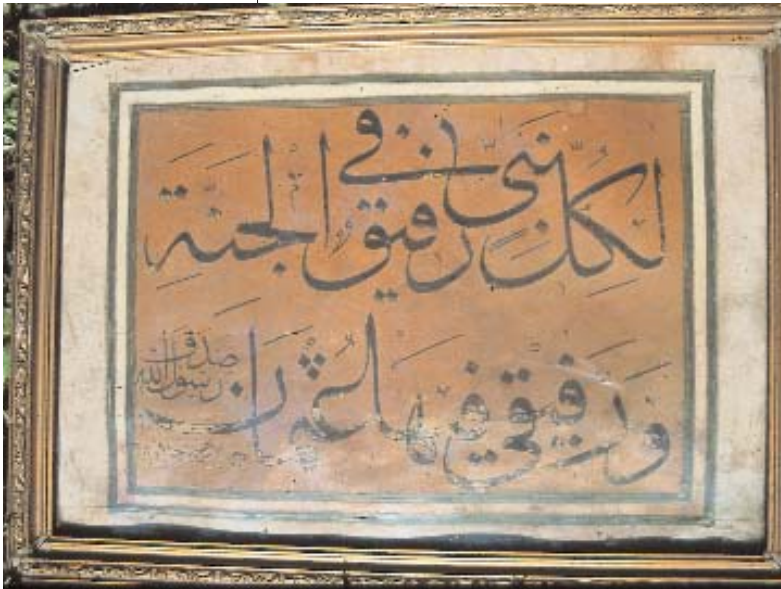 لِكُلِّ نَبِيٍّ رَفِيقٌ فِي الْجَنَّةِ
وَرَفِيقِي فِيهَا عُثْمَانُ
صدق
رسول الله